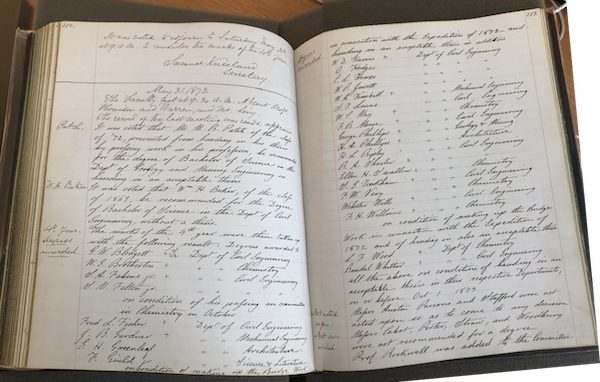 222.
It was voted to adjourn to Saturday, May 31
at 9 a.m. to consider the marks of the 4th Year.
Samuel Kneeland
Secretary
May 31, 1873.
The Faculty met at 9.30 a.m. Absent Profs
and Warren, and Mr. Levy.
The record of the last meeting was read & approved.
Patch.
It was voted that Mr. M. B. Patch of the class
of '72, prevented from handing in his thesis
by pressing work in his profession, be recommended
for the degree of Bachelor of Science in the
Dept of Geology and Mining Engineering on
handing in an acceptable thesis.
W. H. Baker
It was voted that Wm H. Baker of the class
of 1869, be recommended for the Degree
of Bachelor of Science in the Dept of Civil
Engineering, without a thesis.
4th Year.
Degrees
awarded.
The marks of the 4th year were then taken up
with the following result - Degrees awarded to
G. W. Blodgett in Dept of Civil Engineering
" " Chemistry
" " Civil Engineering
S. M. Felton Jr.
on condition of his passing an examination
in Chemistry in October
Fred L. " Dept of Civil Engineering
C. B. Gardner " " Mechanical Engineering
E. H. Greenleaf " " Architecture
F. Guild Jr " " Science & Literature
on condition of making up the Bridge Work
223.
Degrees
awarded.
in connection with the Expedition of 1872 and
handing in an acceptable thesis in addition
W. D. Dept of Civil Engineering
C. Hodges " " "
C. L. Howes " " "
W. S. Jewett " " "
W. Kimball " Mechanical Engineering
" Civil Engineering
W. E. May " Chemistry
F. B. Morse " Civil Engineering
George Phillips " Geology & Mining
H. A. Phillips " Architecture
H. L. Ripley " Civil Engineering
B. A. Wheeler " " "
Ellen H. Swallow " Chemistry
S. E. Tinkham " Civil Engineering
F. W. Very " Chemistry
Webster Wells " Civil Engineering
F. H. Williams " Chemistry
on condition of making up the Bridge
Work in connection with the Expedition of
1872 and of handing in an acceptable thesis
L. F. Wood " Dept of Chemistry
Randal Whittier " Civil Engineering
all the above on condition of handing in an
acceptable thesis in their respective Departments,
on or before Oct. 1 1873.
Messrs Parsons and Stafford were not
acted upon so as to come to any decision
Messrs Cabot, Porter, and Woodbury
were not recommended for a degree.
Prof. Rockwell was added to the Committee